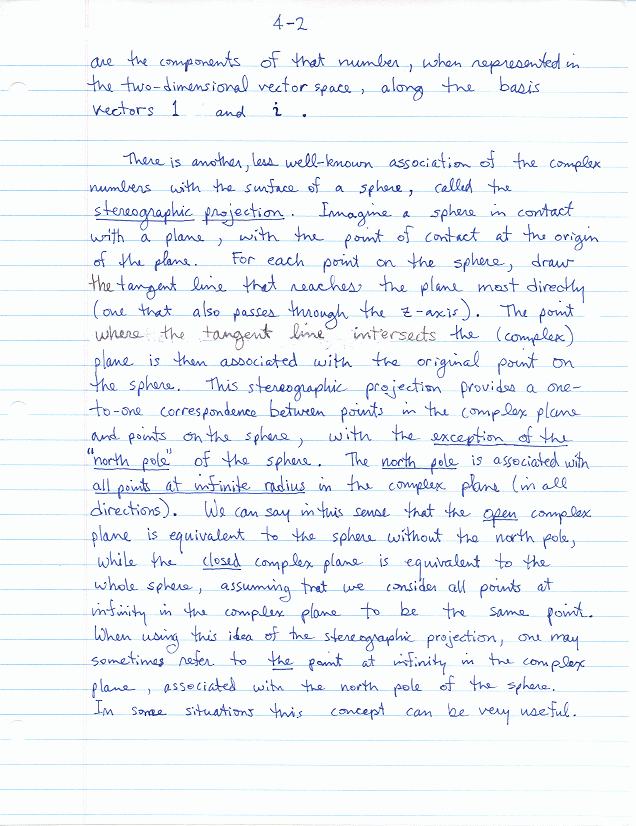 4-2
are the components of that number, when represented in
the two-dimensional vector space, along the basis
vectors 1 and i.
There is another, less well-known association of the complex
numbers with the surface of a sphere, called the
stereographic projection. Immagine a sphere in contact
with a plane, with the point of contact at the origin
of the plane. For each point on the sphere, draw
the tangent line that reaches the plane most directly
(one that also passes through the z-axis). The point
where the tangent line intersects the (complex)
plane is then associated with the original point on
the sphere. This stereographic projection provides a one-
to-one correspondence between points in the complex plane
and points on the sphere, with the exception of the
"north pole" of the sphere. The north pole is associated with
all points at infinite radius in the complex plane (in all
directions). We can say in this sense that the open complex
plane is equivalent to the sphere without the north pole,
while the closed complex plane is equivalent to the
whole sphere, assuming that we consider all points at
infinity in the complex plane to be the same point.
When using this idea of the stereographic projection, one may
sometimes refer to the point at infinity in the complex
plane, associated with the north pole of the sphere.
In some situations this concept can be very useful.